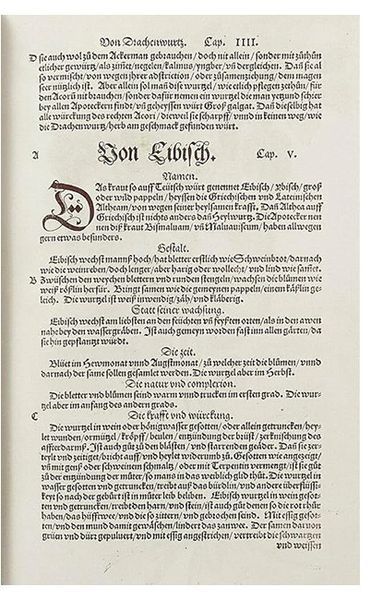 Von Drachenwurtz. Cap. IIII.
D sie auch wol zů dem Ackerman gebrauchen/ doch nit allein/ sonder mit zůthůn
etlicher gewürtz/ als zimet/ negelen/ kalmus/ yngber/ vñ dergleichen. Dañ sie al
so vermischt/ von wegen jrer adstriction/ oder zůsamenziehung/ dem magen
seer nützlich ist. Aber allein sol man dise wurtzel/ wie etlich pflegen zethůn/ für
den Acorũ nit brauchen/ sonder dafür nemen ein wurtzel die man yetzund schier
bey allen Apoteckern findt/ vñ geheyssen würt Groß galgat. Dañ dieselbig hat
alle würckung des rechten Acori/ dieweil sie scharpff/ vnnd in keinen weg/ wie
die Drachenwurtz/ herb am geschmack gefunden würt.
A Von Eibisch. Cap. V.
Namen.
DAs kraut so auff Teütsch würt genennet Eibisch/ Ybisch/ groß
oder wild pappeln/ heyssen die Griechischen vnd Lateinischen
Altheam/ von wegen seiner heylsamen krafft. Dañ Althea auff
Griechisch ist nichts anders dañ Heylwurtz. Die Apotecker nen
nen diß kraut Bismaluam/ vñ Maluauiscum/ haben allwegen
gern etwas besunders.
Gestalt.
Eibisch wechst manns hoch/ hat bletter erstlich wie Schweinbrot/ darnach
wie die weinreben/ doch lenger/ aber harig oder wollecht/ vnd lind wie sammet.
B Zwüschen den weychen blettern vnd runden stengeln/ wachsen die blůmen wie
weiß rößlin herfür. Bringt samen wie die gemeynen pappeln/ einem käßlin ge-
leich. Die wurtzel ist weiß inwendig/ zäh/ vnd kläberig.
Statt seiner wachsung.
Eibisch wechst am liebsten an den feüchten vñ feyßten orten/ als in den awen
nahe bey den wassergräben. Ist auch gemeyn worden fast inn allen gärten/ da
sie hin gepflantzt würdt.
Die zeit.
Blüet im Hewmonat vnnd Augstmonat/ zů welcher zeit die blůmen/ vnnd
darnach der same sollen gesamlet werden. Die wurtzel aber im Herbst.
Die natur vnd complexion.
Die bletter vnd blůmen seind warm vnnd trucken im ersten grad. Die wur-
tzel aber im anfang des andern grads.
C Die krafft vnd würckung.
Die wurtzel in wein oder hönigwasser gesotten/ oder allein getruncken/ hey-
let wunden/ ormützel/ kröpff/ beulen/ entzündung der brüst/ zerknischung des
affterdarmß. Ist auch gůt zů den bläßten/ vnd starrenden geäder. Dañ sie zer-
teylt vnd zeitiget/ bricht auff/ vnd heylet widerumb zů. Gesotten wie angezeigt/
vñ mit genß oder schweinem schmaltz/ oder mit Terpentin vermengt/ ist sie gůt
zů der entzündung der můter/ so mans in das weiblich glid thůt. Die wurtzel in
wasser gesotten vnd getruncken/ treibet auß das bürdlin/ vnd andere überflüssig-
keyt so nach der gebürt ist in můter leib beliben. Eibisch wurtzel in wein gesot-
ten vnd getruncken/ treibet den harn/ vnd stein/ ist auch gůt denen so die rot rhůr
haben/ das hüfftwee/ vnd die so zittern/ vnd gebrochen seind. Mit essig gesot-
ten/ vnd den mund damit gewäschen/ lindert das zanwee. Der samen daruon
grün vnd dürr gepuluert/ vnd mit essig angestrichen/ vertreibt die schwartzen
vnd weissen